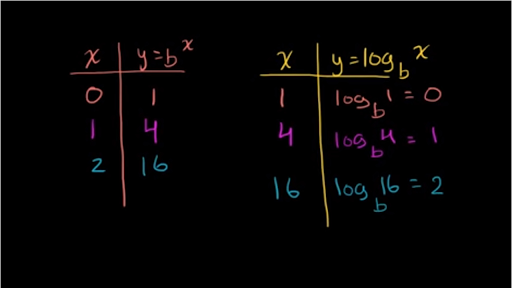 x y=b^x
0 1
1 4
2 16
x y=log_b x
1 log_b 1 = 0
4 log_b 4 = 1
16 log_b 16 = 2